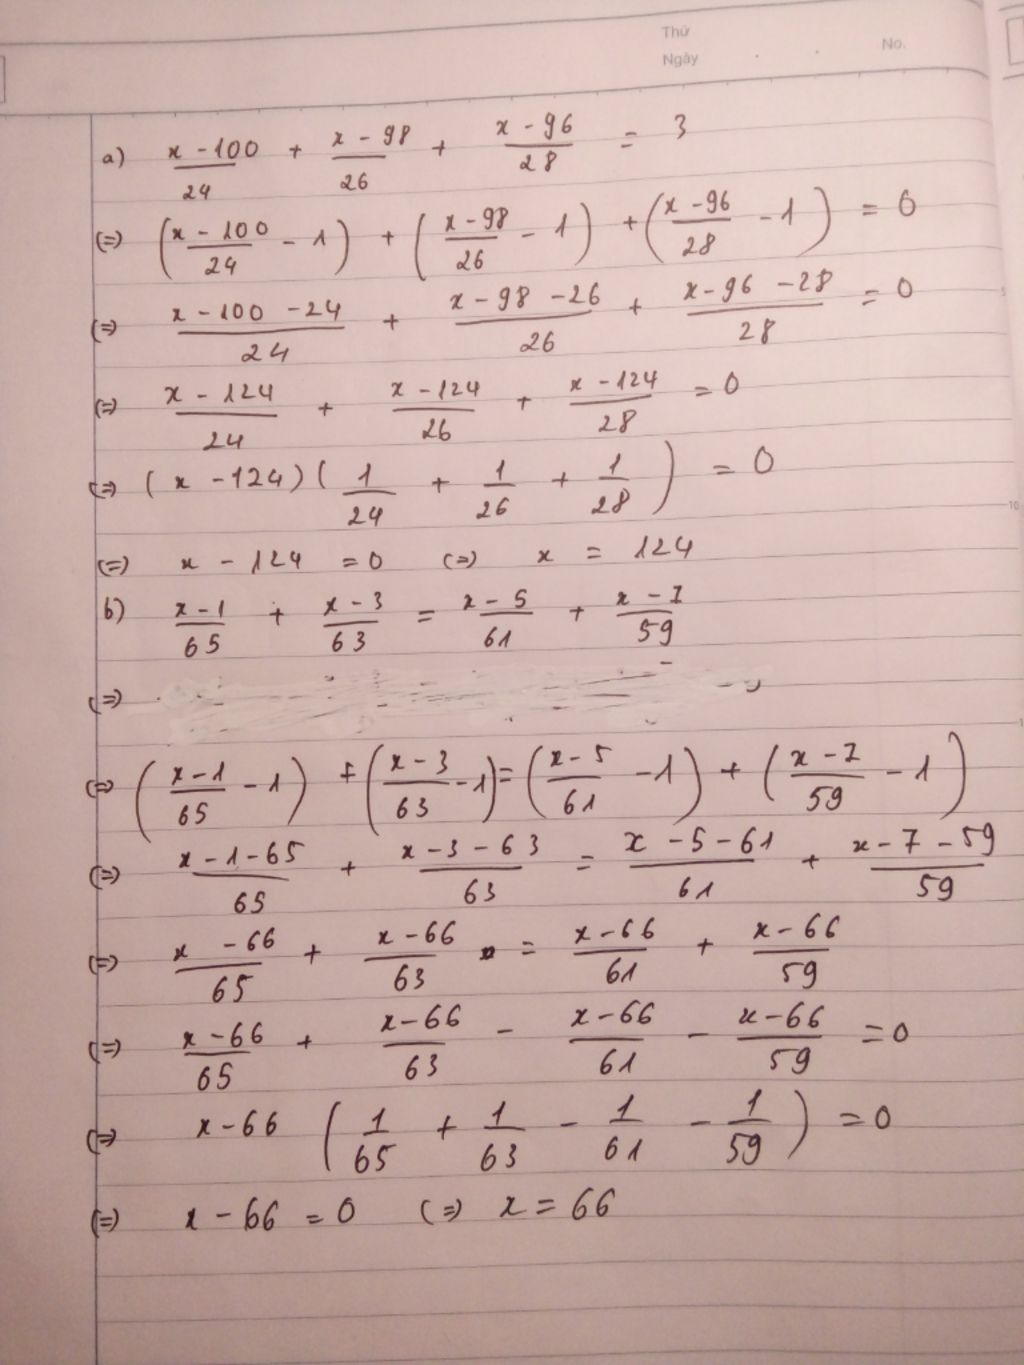 Thứ
Ngày . . No.
a) (x - 100)/24 + (x - 98)/26 + (x - 96)/28 = 3
(=) ((x - 100)/24 - 1) + ((x - 98)/26 - 1) + ((x - 96)/28 - 1) = 0
(=) (x - 100 - 24)/24 + (x - 98 - 26)/26 + (x - 96 - 28)/28 = 0
(=) (x - 124)/24 + (x - 124)/26 + (x - 124)/28 = 0
(=) (x - 124)(1/24 + 1/26 + 1/28) = 0
(=) x - 124 = 0 (=) x = 124
b) (x - 1)/65 + (x - 3)/63 = (x - 5)/61 + (x - 7)/59
(=)
(=) ((x - 1)/65 - 1) + ((x - 3)/63 - 1) = ((x - 5)/61 - 1) + ((x - 7)/59 - 1)
(=) (x - 1 - 65)/65 + (x - 3 - 63)/63 = (x - 5 - 61)/61 + (x - 7 - 59)/59
(=) (x - 66)/65 + (x - 66)/63 = (x - 66)/61 + (x - 66)/59
(=) (x - 66)/65 + (x - 66)/63 - (x - 66)/61 - (x - 66)/59 = 0
(=) x - 66 (1/65 + 1/63 - 1/61 - 1/59) = 0
(=) x - 66 = 0 (=) x = 66